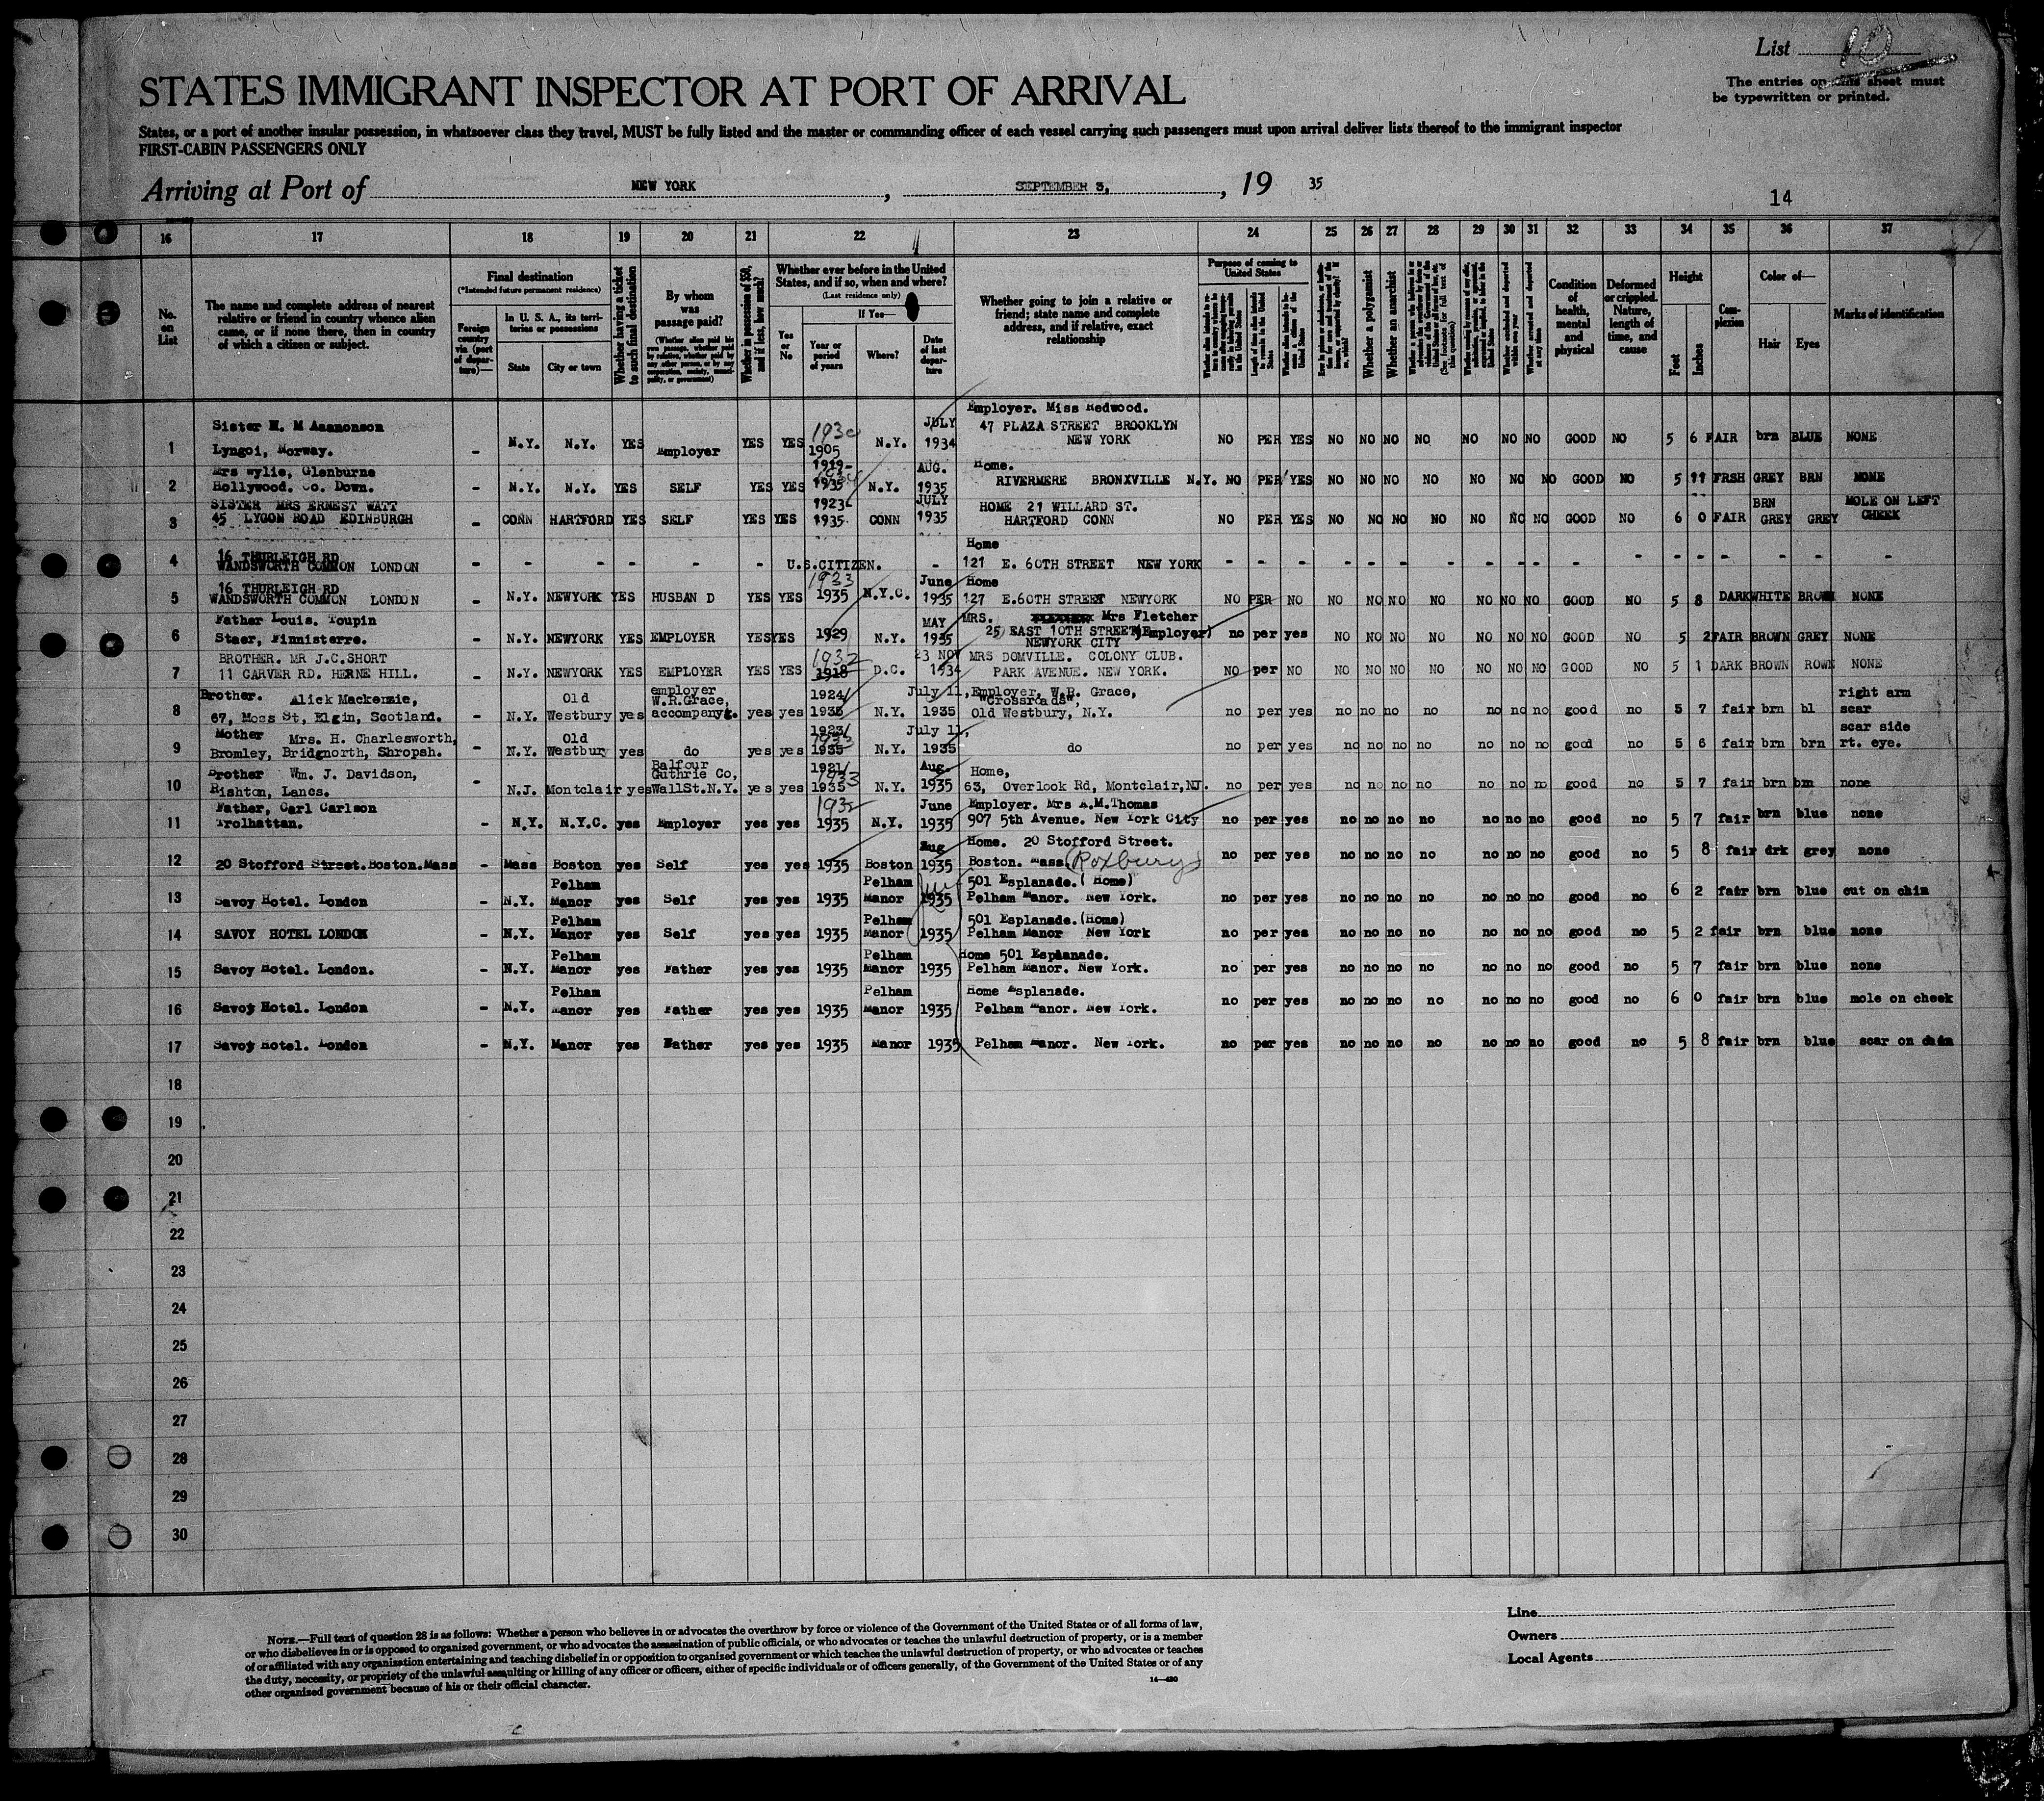 List 10
The entries on this sheet must
be typewritten or printed.
STATES IMMIGRANT INSPECTOR AT PORT OF ARRIVAL
States, or a port of another insular possession, in whatsoever class they travel, MUST be fully listed and the master or commanding officer of each vessel carrying such passengers must upon arrival deliver lists thereof to the immigrant inspector
FIRST-CABIN PASSENGERS ONLY
Arriving at Port of NEW YORK, SEPTEMBER 3, 19 35
14
16 17 18 19 20 21 22 23 24 25 26 27 28 29 30 31 32 33 34 35 36 37
No. on List
The name and complete address of nearest relative or friend in country whence alien came, or if none there, then in country of which a citizen or subject.
Final destination
(*Intended future permanent residence)
Foreign country via (port of departure)—
In U. S. A., its territories or possessions
State
City or town
Whether having a ticket to such final destination
By whom was passage paid?
(Whether alien paid his own passage, whether paid by relative, whether paid by any other person, or by any corporation, society, municipality, or government)
Whether in possession of $50, and if less, how much?
Whether ever before in the United States, and if so, when and where?
(Last residence only)
Yes or No
If Yes—
Year or period of years
Where?
Date of last departure
Whether going to join a relative or friend; state name and complete address, and if relative, exact relationship
Purpose of coming to United States
Whether a polygamist
Whether an anarchist
Condition of health, mental and physical
Deformed or crippled. Nature, length of time, and cause
Height
Feet
Inches
Complexion
Color of—
Hair
Eyes
Marks of identification
Employer. Miss Redwood.
Sister M. M JULY 47 PLAZA STREET BROOKLYN
1 Lyngoi, Norway. - N.Y. N.Y. YES Employer YES YES 1905 N.Y. 1934 NEW YORK NO PER YES NO NO NO NO NO NO NO GOOD NO 5 6 FAIR brn BLUE NONE
Mrs Wylie, Glenburne 1919- AUG. Home.
2 Hollywood. Co. Down. - N.Y. N.Y. YES SELF YES YES 1935 N.Y. 1935 RIVERMERE BRONXVILLE N.Y. NO PER YES NO NO NO NO NO NO NO GOOD NO 5 11 FRSH GREY BRN NONE
SISTER MRS ERNEST WATT 1923 JULY HOME 21 WILLARD ST. BRN MOLE ON LEFT
3 45 LYGON ROAD EDINBURGH - CONN HARTFORD YES SELF YES YES 1935 CONN 1935 HARTFORD CONN NO PER YES NO NO NO NO NO NO NO GOOD NO 6 0 FAIR GREY GREY CHEEK
16 THURLEIGH RD Home
4 WANDSWORTH COMMON LONDON - - - - - - U.S.CITIZEN. - 121 E. 60TH STREET NEW YORK - - - - - - - - - - - - - - - - - -
16 THURLEIGH RD 1933 June Home
5 WANDSWORTH COMMON LONDON - N.Y. NEWYORK YES HUSBAN D YES YES 1935 N.Y.C. 1935 127 E.60TH STREET NEWYORK NO PER NO NO NO NO NO NO NO NO GOOD NO 5 8 DARK WHITE BROWN NONE
Father Louis. Toupin MAY MRS. Mrs Fletcher
6 Staer, Finnisterre. - N.Y. NEWYORK YES EMPLOYER YES YES 1929 N.Y. 1935 25 EAST 10TH STREET (Employer) no per yes NO NO NO NO NO NO NO GOOD NO 5 2 FAIR BROWN GREY NONE
NEWYORK CITY
BROTHER. MR J.C.SHORT 1932 23 NOV MRS DOMVILLE. COLONY CLUB.
7 11 CARVER RD. HERNE HILL. - N.Y. NEWYORK YES EMPLOYER YES YES 1918 D.C. 1934 PARK AVENUE. NEW YORK. NO per NO NO NO NO NO NO NO NO GOOD NO 5 1 DARK BROWN ROWN NONE
Brother. Alick Mackenzie, Old employer W.R.Grace, 1924/ July 11, Employer, W.R. Grace, "Crossroads", right arm
8 67, Moss St, Elgin, Scotland. - N.Y. Westbury yes accompanyg. yes yes 1935 N.Y. 1935 Old Westbury, N.Y. no per yes no no no no no no no good no 5 7 fair brn bl scar
Mother Mrs. H. Charlesworth, Old 1923/ July 11, scar side
9 Bromley, Bridgnorth, Shropsh. - N.Y. Westbury yes do yes yes 1935 N.Y. 1935 do no per yes no no no no no no no good no 5 6 fair brn brn rt. eye.
Brother Wm. J. Davidson, Balfour Guthrie Co, 1921/ 1933 Aug. Home,
10 Rishton, Lancs. - N.J. Montclair yes WallSt.N.Y. yes yes 1935 N.Y. 1935 63, Overlook Rd, Montclair,NJ. no per yes no no no no no no no good no 5 7 fair brn brn none
Father, Carl Carlson 1932 June Employer. Mrs A.M.Thomas
11 Trolhattan. - N.Y. N.Y.C. yes Employer yes yes 1935 N.Y. 1935 907 5th Avenue. New York City no per yes no no no no no no no good no 5 7 fair brn blue none
Aug Home. 20 Stofford Street.
12 20 Stofford Street.Boston.Mass - Mass Boston yes Self yes yes 1935 Boston 1935 Boston. Mass (Roxbury) no per yes no no no no no no no good no 5 8 fair drk grey none
Pelham Pelham 501 Esplanade.( Home)
13 Savoy Hotel. London - N.Y. Manor yes Self yes yes 1935 Manor 1935 Pelham Manor. New York. no per yes no no no no no no no good no 6 2 fair brn blue cut on chin
Pelham Pelham 501 Esplanade.(Home)
14 SAVOY HOTEL LONDON - N.Y. Manor yes Self yes yes 1935 Manor 1935 Pelham Manor New York no per yes no no no no no no no good no 5 2 fair brn blue none
Pelham Pelham Home 501 Esplanade.
15 Savoy Hotel. London. - N.Y. Manor yes Father yes yes 1935 Manor 1935 Pelham Manor. New York. no per yes no no no no no no no good no 5 7 fair brn blue none
Pelham Pelham Home Esplanade.
16 Savoy Hotel. London - N.Y. Manor yes Father yes yes 1935 Manor 1935 Pelham Manor. New York. no per yes no no no no no no no good no 6 0 fair brn blue mole on cheek
17 Savoy Hotel. London - N.Y. Manor yes Father yes yes 1935 Manor 1935 Pelham Manor. New York. no per yes no no no no no no no good no 5 8 fair brn blue scar on chin
18
19
20
21
22
23
24
25
26
27
28
29
30
NOTE.—Full text of question 28 is as follows: Whether a person who believes in or advocates the overthrow by force or violence of the Government of the United States or of all forms of law,
or who disbelieves in or is opposed to organized government, or who advocates the assassination of public officials, or who advocates or teaches the unlawful destruction of property, or is a member
of or affiliated with any organization entertaining and teaching disbelief in or opposition to organized government or which teaches the unlawful destruction of property, or who advocates or teaches
the duty, necessity, or propriety of the unlawful assaulting or killing of any officer or officers, either of specific individuals or of officers generally, of the Government of the United States or of any
other organized government because of his or their official character.
14—430
Line
Owners
Local Agents